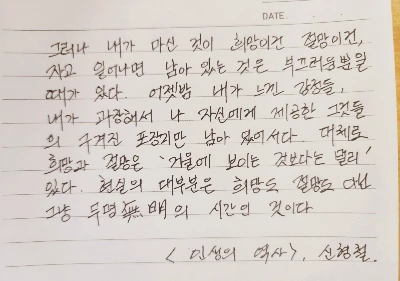 DATE
그러나 내가 마신 것이 희망이건 절망이건,
자고 일어나면 남아 있는 것은 부끄러움뿐일
때가 있다. 어젯밤 내가 느낀 감정들,
내가 과장해서 나 자신에게 제공한 그것들
의 구겨진 포장지만 남아 있어서다. 대체로
희망과 절망은 '거울에 보이는 것보다는 멀리'
있다. 현실의 대부분은 희망도 절망도 아닌
그냥 무명無 의 시간인 것이다
<인생의 역사>, 신형철.